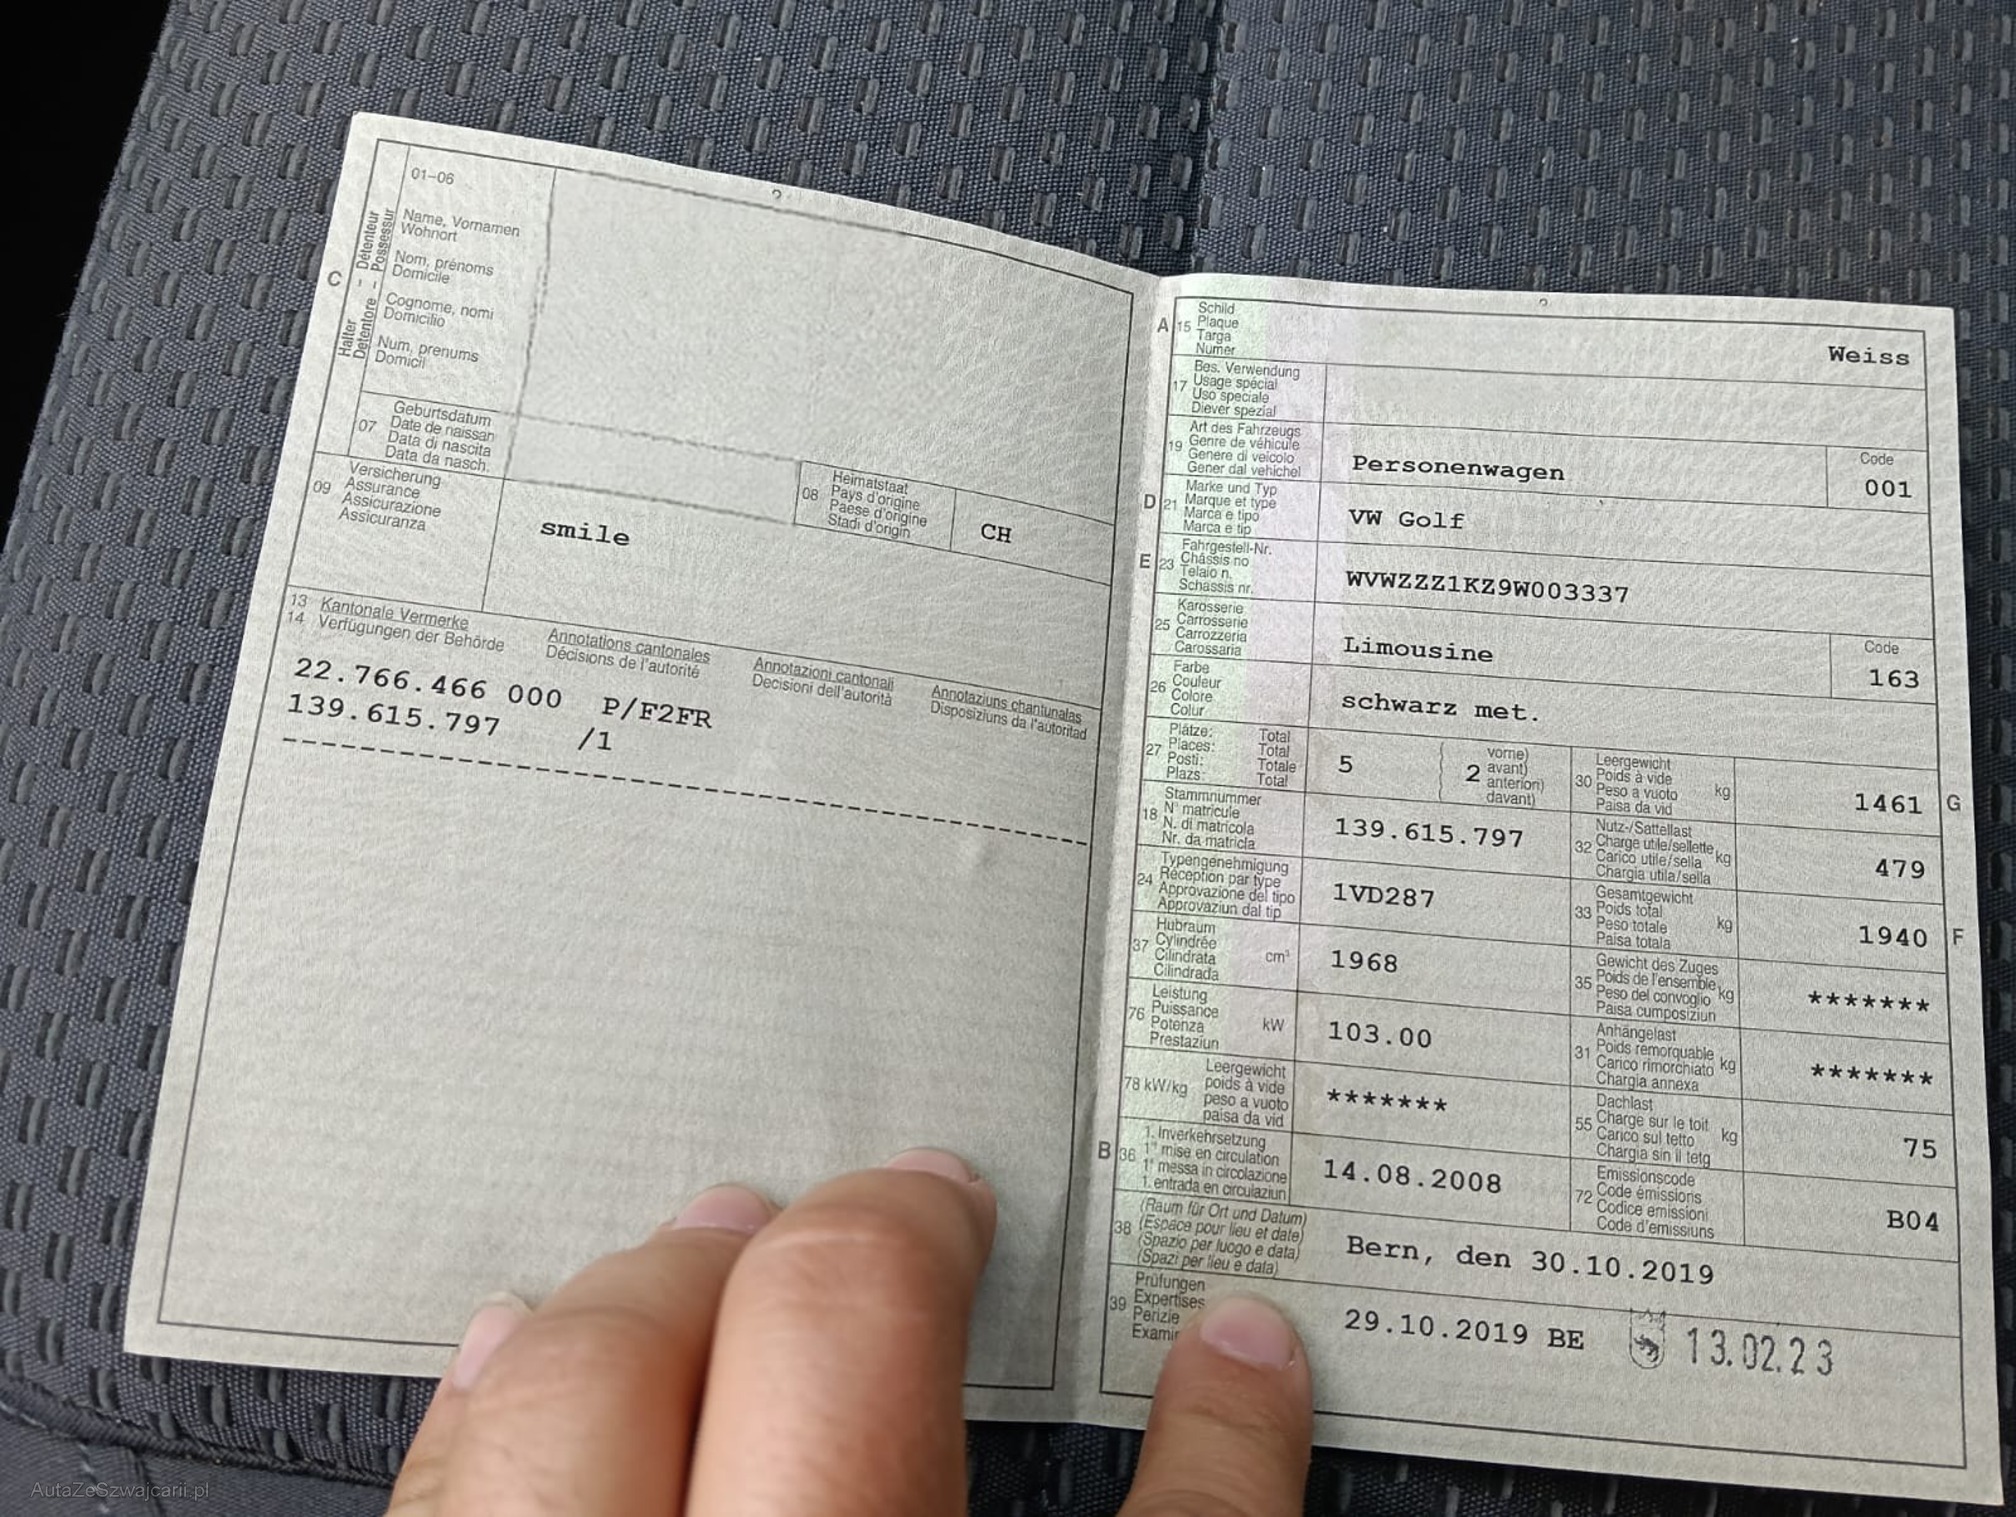 01–06
C
Halter – Détenteur
Detentore – Possessur
Name, Vornamen
Wohnort
Nom, prénoms
Domicile
Cognome, nomi
Domicilio
Num, prenums
Domicil
07
Geburtsdatum
Date de naissan
Data di nascita
Data da nasch.
08
Heimatstaat
Pays d'origine
Paese d'origine
Stadi d'origin
CH
09
Versicherung
Assurance
Assicurazione
Assicuranza
smile
13 Kantonale Vermerke
14 Verfügungen der Behörde
Annotations cantonales
Décisions de l'autorité
Annotazioni cantonali
Decisioni dell'autorità
Annotaziuns chantunalas
Disposiziuns da l'autoritad
22.766.466 000 P/F2FR
139.615.797 /1
A 15
Schild
Plaque
Targa
Numer
Weiss
17
Bes. Verwendung
Usage spécial
Uso speciale
Diever spezial
19
Art des Fahrzeugs
Genre de véhicule
Genere di veicolo
Gener dal vehichel
Personenwagen
Code
001
D 21
Marke und Typ
Marque et type
Marca e tipo
Marca e tip
VW Golf
E 23
Fahrgestell-Nr.
Châssis no
Telaio n.
Schassis nr.
WVWZZZ1KZ9W003337
25
Karosserie
Carrosserie
Carrozzeria
Carossaria
Limousine
Code
163
26
Farbe
Couleur
Colore
Colur
schwarz met.
27
Plätze: Total
Places: Total
Posti: Totale
Plazs: Total
5
2
vorne)
avant)
anteriori)
davant)
30
Leergewicht
Poids à vide
Peso a vuoto
Paisa da vid
kg
1461
G
18
Stammnummer
N° matricule
N. di matricola
Nr. da matricla
139.615.797
32
Nutz-/Sattellast
Charge utile/sellette
Carico utile/sella
Chargia utila/sella
kg
479
24
Typengenehmigung
Réception par type
Approvazione del tipo
Approvaziun dal tip
1VD287
33
Gesamtgewicht
Poids total
Peso totale
Paisa totala
kg
1940
F
37
Hubraum
Cylindrée
Cilindrata
Cilindrada
cm³
1968
35
Gewicht des Zuges
Poids de l'ensemble
Peso del convoglio
Paisa cumposiziun
kg
*******
76
Leistung
Puissance
Potenza
Prestaziun
kW
103.00
31
Anhängelast
Poids remorquable
Carico rimorchiato
Chargia annexa
kg
*******
78 kW/kg
Leergewicht
poids à vide
peso a vuoto
paisa da vid
*******
55
Dachlast
Charge sur le toit
Carico sul tetto
Chargia sin il tetg
kg
75
B 36
1. Inverkehrsetzung
1re mise en circulation
1a messa in circolazione
1. entrada en circulaziun
14.08.2008
72
Emissionscode
Code émissions
Codice emissioni
Code d'emissiuns
B04
38
(Raum für Ort und Datum)
(Espace pour lieu et date)
(Spazio per luogo e data)
(Spazi per lieu e data)
Bern, den 30.10.2019
39
Prüfungen
Expertises
Perizie
Examin
29.10.2019 BE
13.02.23
AutaZeSzwajcarii.pl